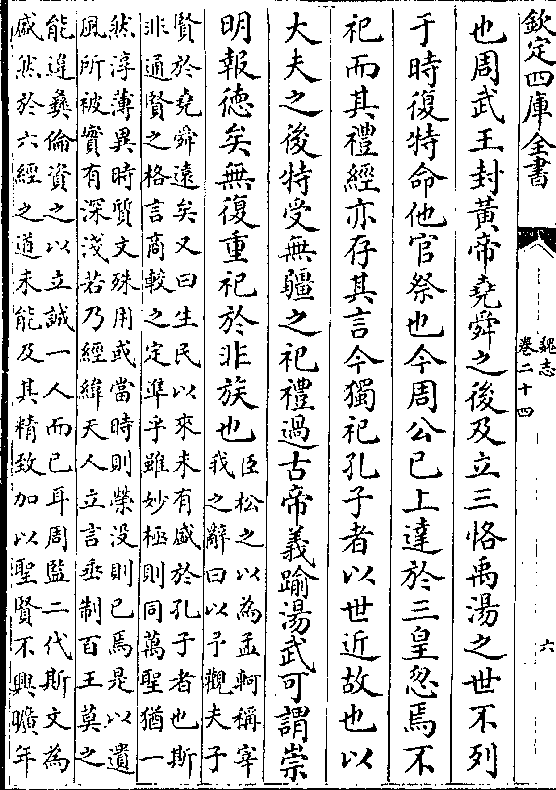 欽定四庫全書
魏志
卷二十四
六
也周武王封黃帝堯舜之後及立三恪禹湯之世不列
于時復特命他官祭也今周公已上達於三皇忽焉不
祀而其禮經亦存其言今獨祀孔子者以世近故也以
大夫之後特受無疆之祀禮過古帝義踰湯武可謂崇
明報德矣無復重祀於非族也
臣松之以為孟軻稱宰
我之辭曰以予觀夫子
賢於堯舜遠矣又曰生民以來未有盛於孔子者也斯
非通賢之格言商較之定準乎雖妙極則同萬聖猶一
然淳薄異時質文殊用或當時則榮没則已焉是以遺
風所被實有深淺若乃經緯天人立言垂制百王莫之
能違彝倫資之以立誠一人而已耳周監二代斯文為
盛然於六經之道未能及其精致加以聖賢不興曠年